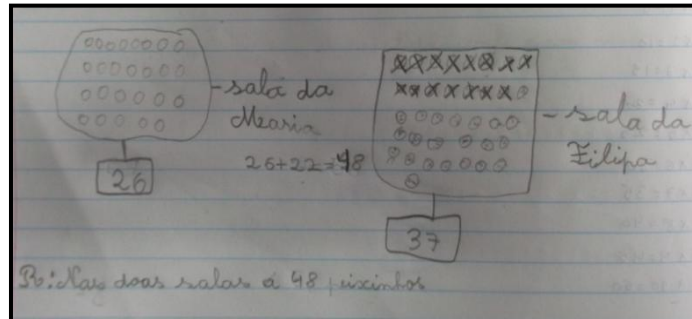 - sala da
Maria
26
26+22=48
- sala da
Filipa
37
R: Nas doas salas á 48 peixinhos